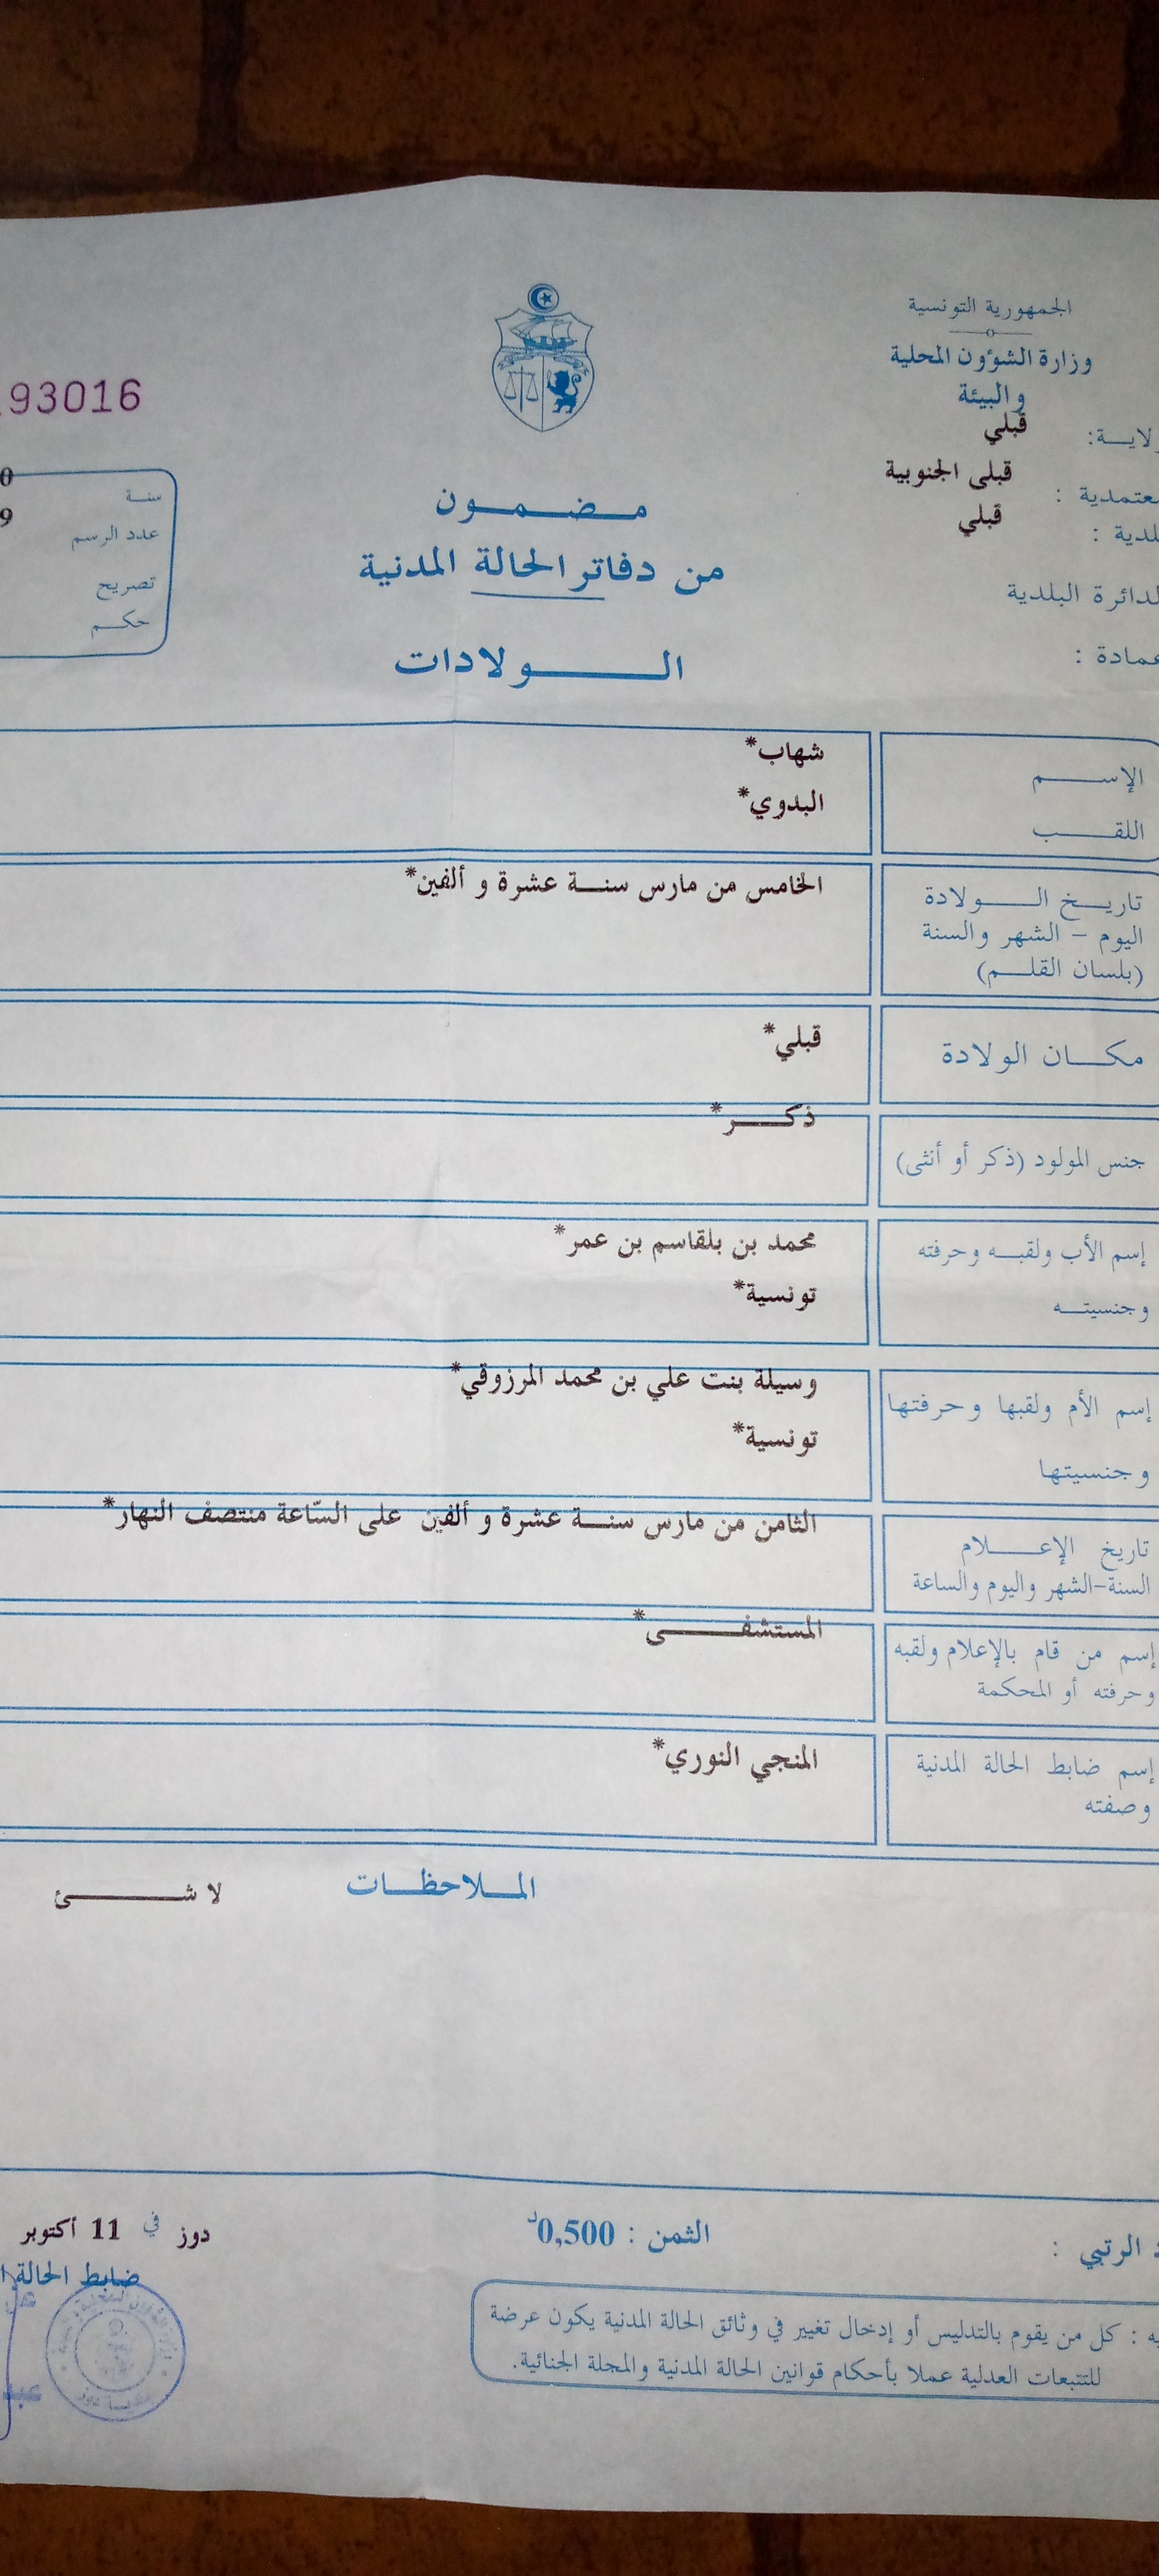 الجمهورية التونسية
وزارة الشؤون المحلية
والبيئة
لاية: قبلي
عتمدية : قبلى الجنوبية
لدية : قبلي
لدائرة البلدية
عمادة :
مضمون
من دفاتر الحالة المدنية
الولادات
93016
0
سنة
9
عدد الرسم
تصريح
حكم
الإسم شهاب*
اللقب البدوي*
تاريخ الولادة الخامس من مارس سنة عشرة و ألفين*
اليوم – الشهر والسنة
(بلسان القلم)
مكان الولادة قبلي*
جنس المولود (ذكر أو أنثى) ذكر*
إسم الأب ولقبه وحرفته محمد بن بلقاسم بن عمر*
وجنسيته تونسية*
إسم الأم ولقبها وحرفتها وسيلة بنت علي بن محمد المرزوقي*
وجنسيتها تونسية*
تاريخ الإعلام الثامن من مارس سنة عشرة و ألفين على السّاعة منتصف النهار*
السنة-الشهر واليوم والساعة
إسم من قام بالإعلام ولقبه المستشفى*
وحرفته أو المحكمة
إسم ضابط الحالة المدنية المنجي النوري*
وصفته
الملاحظات لا شئ
الرتبي :
الثمن : 0,500د
دوز في 11 أكتوبر
ضابط الحالة ا
يه : كل من يقوم بالتدليس أو إدخال تغيير في وثائق الحالة المدنية يكون عرضة
للتتبعات العدلية عملا بأحكام قوانين الحالة المدنية والمجلة الجنائية.